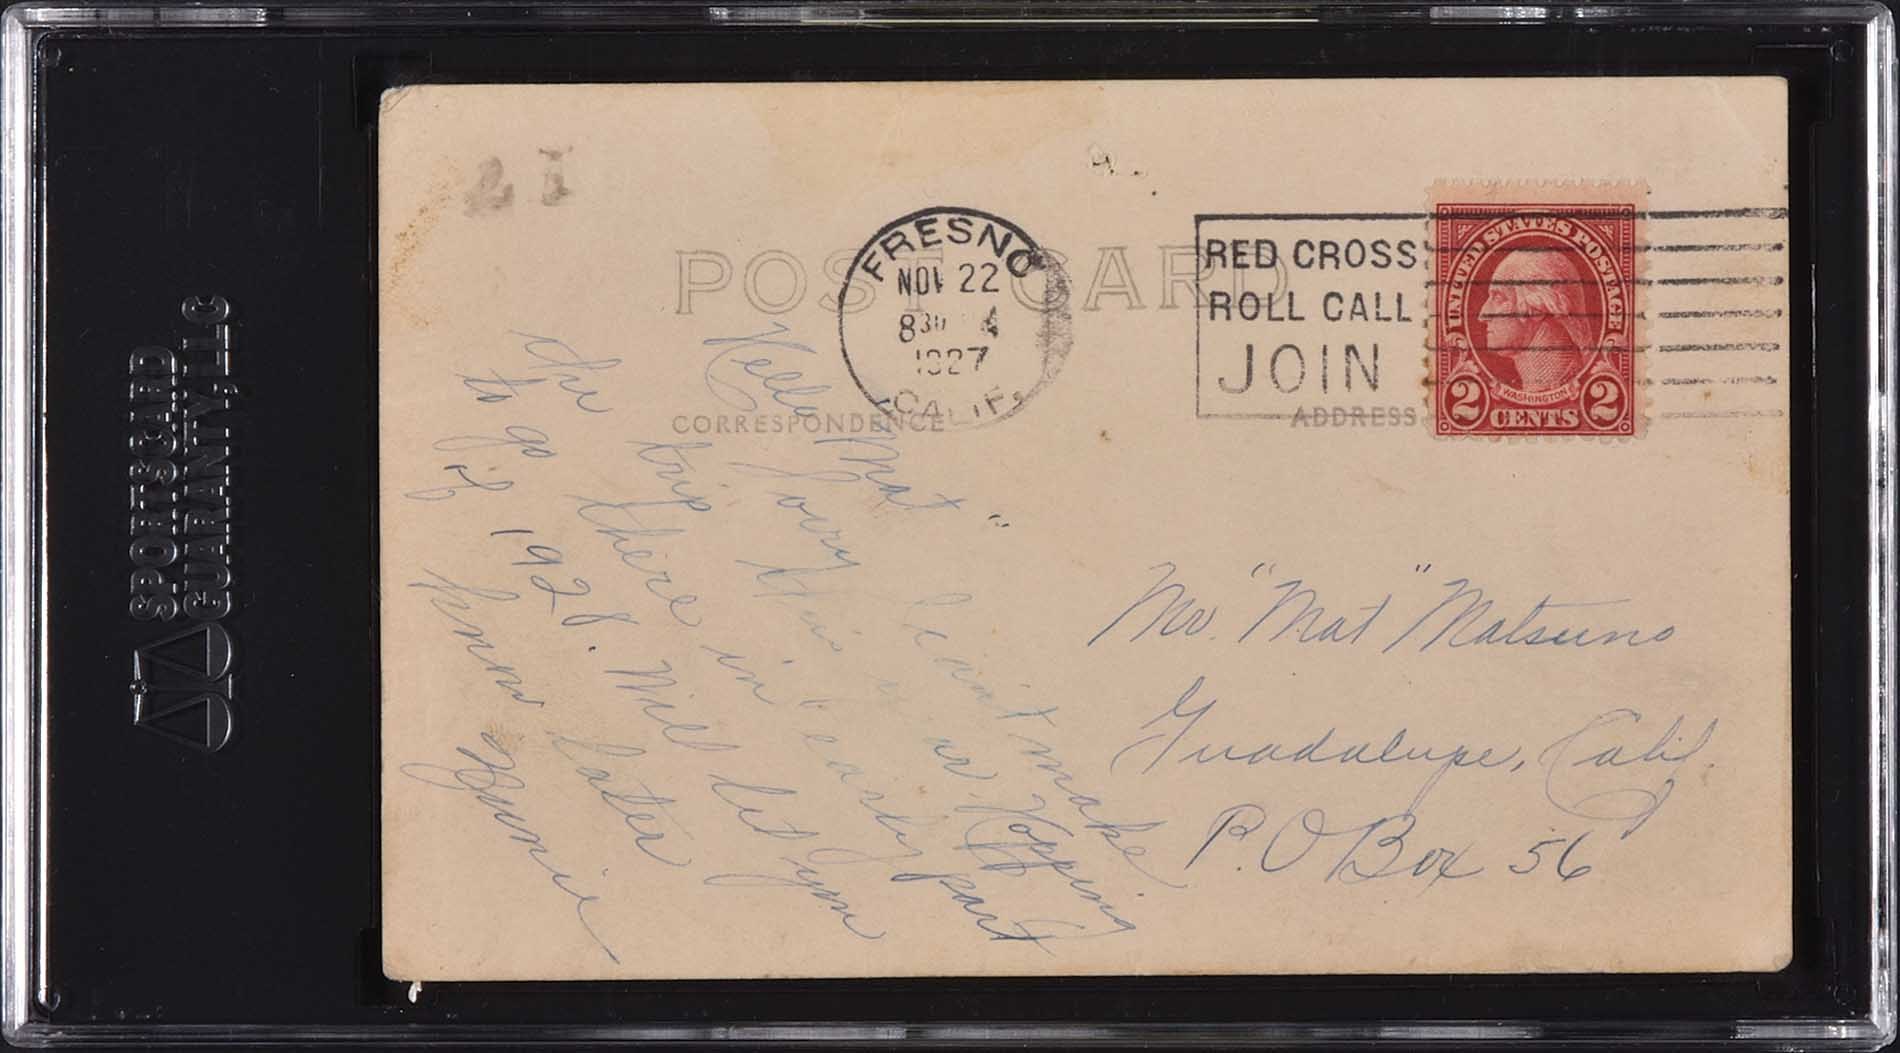 SPORTSCARD
GUARANTY, LLC
POST CARD
FRESNO
NOV 22
8 30 A
1927
CALIF.
RED CROSS
ROLL CALL
JOIN
UNITED STATES POSTAGE
WASHINGTON
2 CENTS 2
CORRESPONDENCE
ADDRESS
Hello Mat
Sorry I can't make
the trip this year. Hopping
to go there in early part
of 1928. Will let you
know later
Mr. "Mat" Matsuno
Guadalupe, Calif.
P.O Box 56